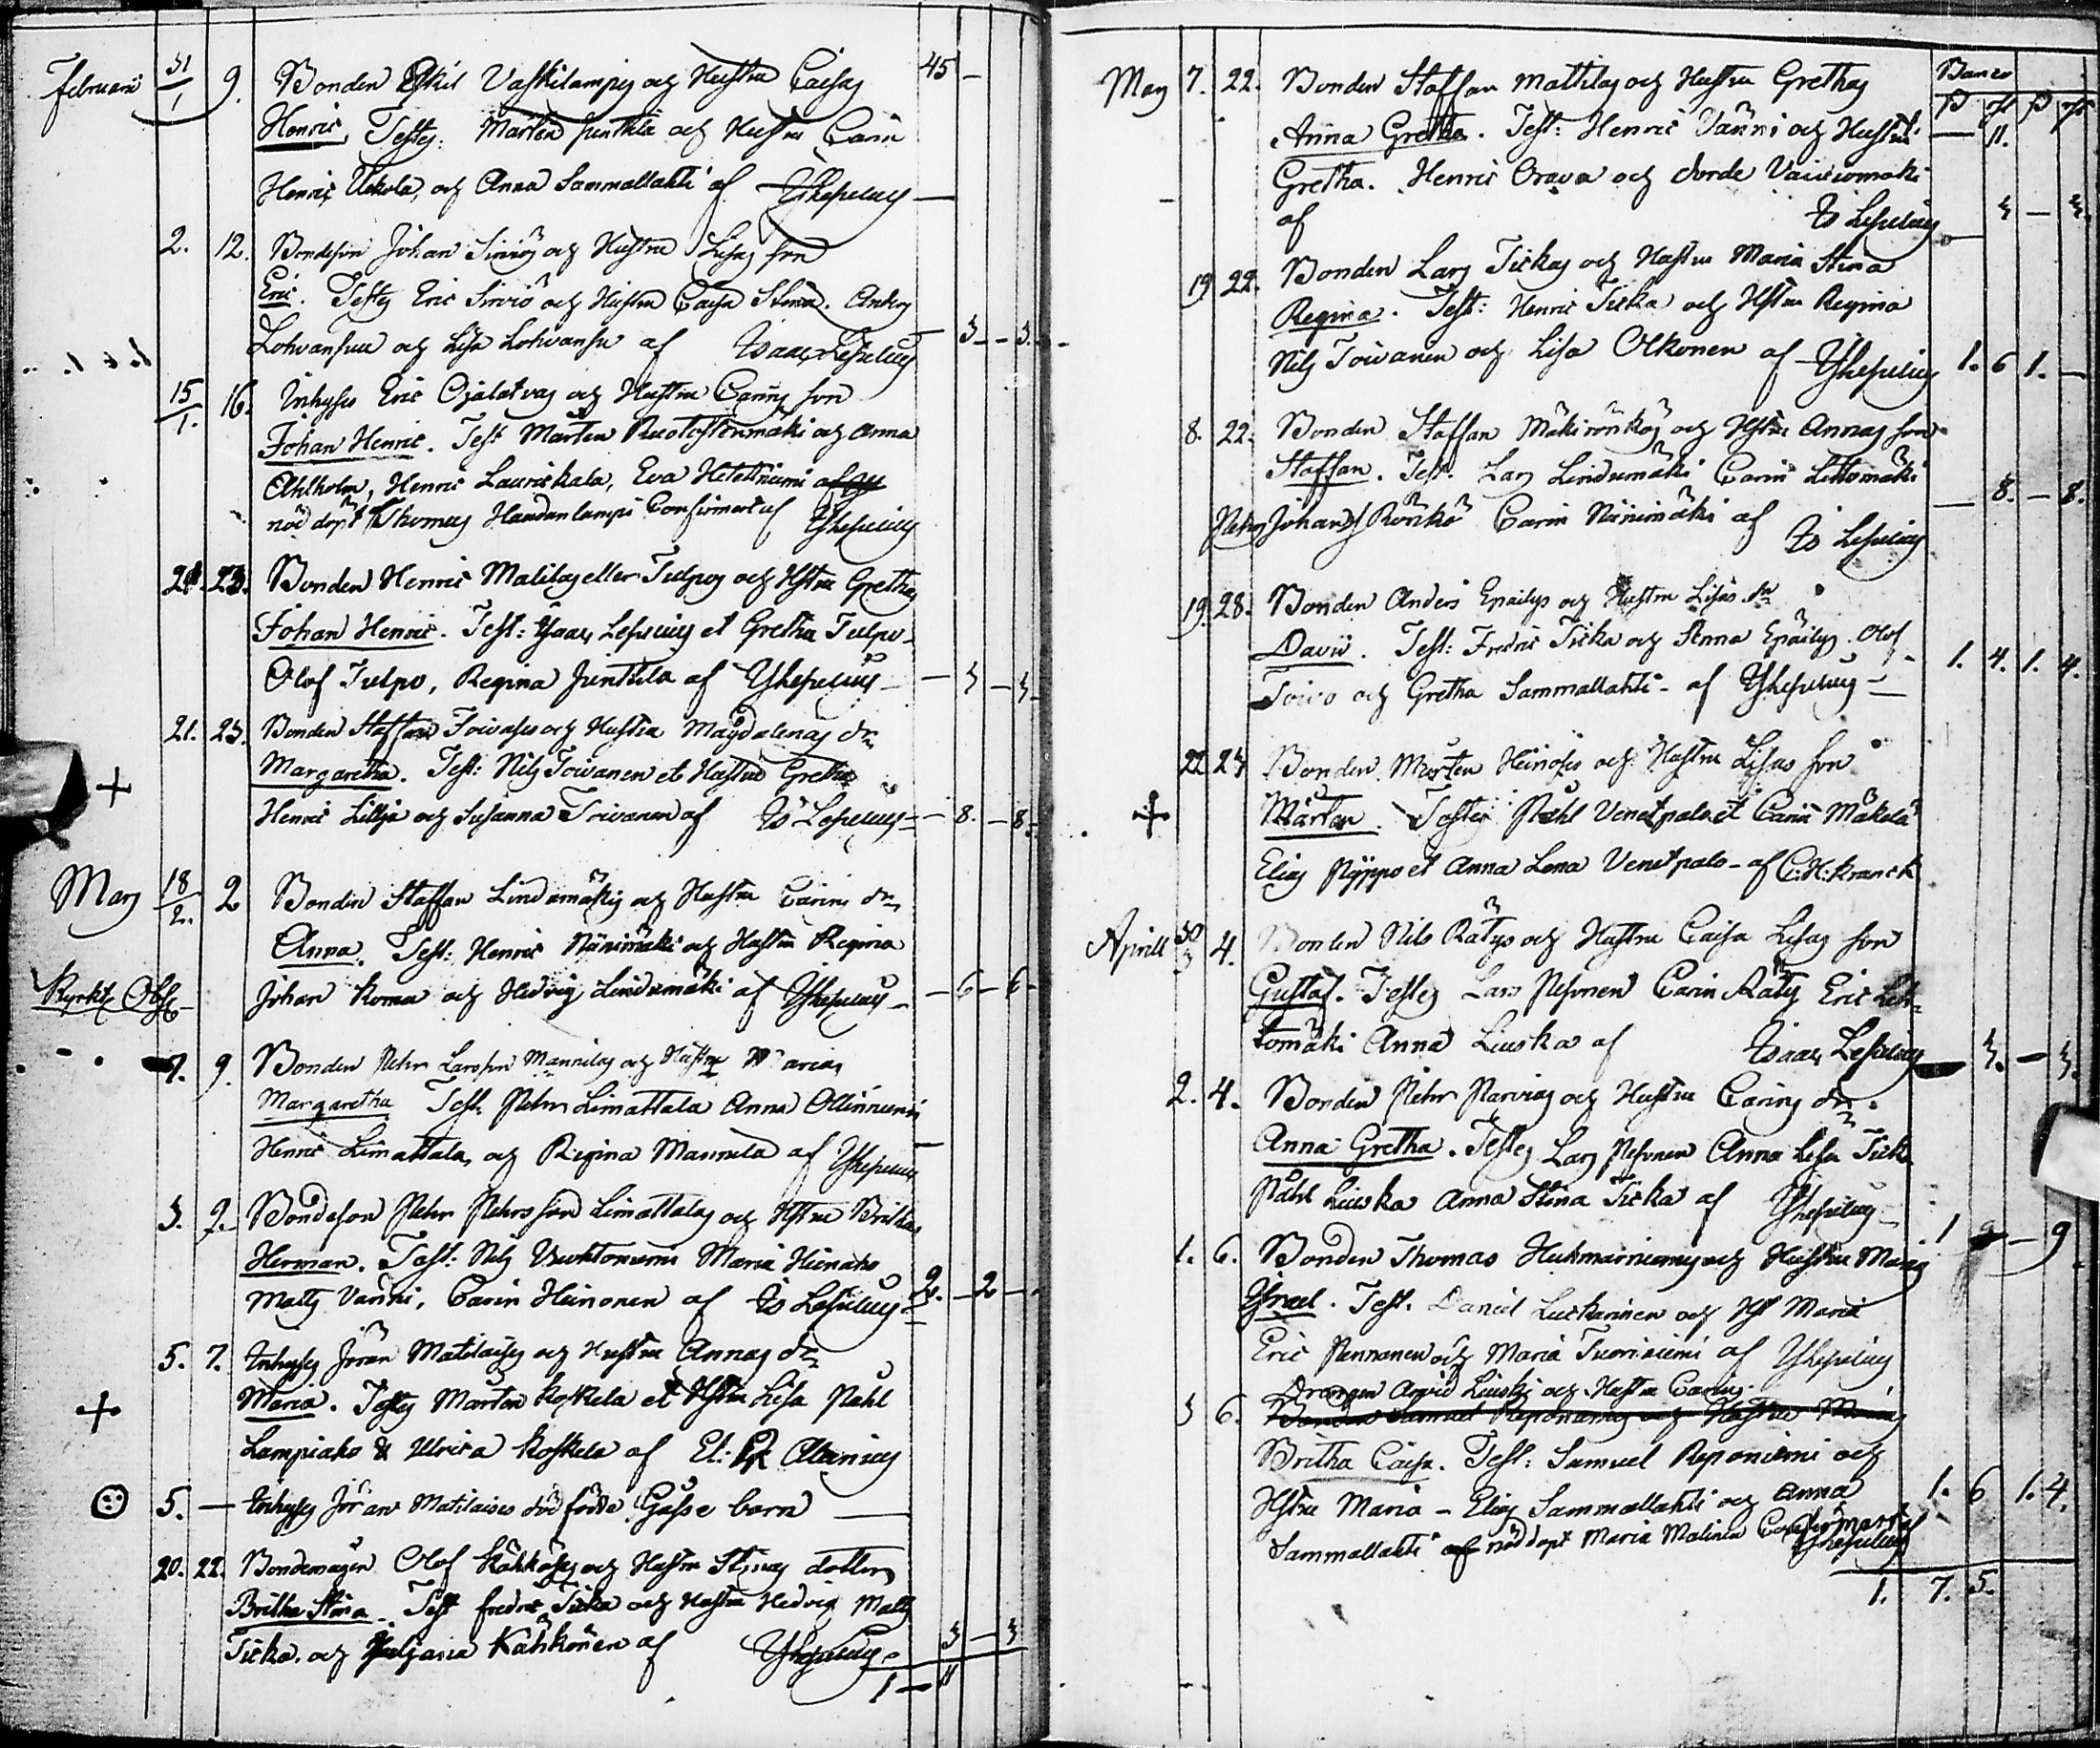 Februarii 31/1 9. Bonden Eskil Vaskilampis och Hustru Caisas 45 -
Henric, Testes: Mårten Junttila och Hustru Carin
Henric Uckola, och Anna Sammallahti af YLesselius —
2. 12. Bondeson Johan Sirviös och Hustru Lisas son
Eric. Testes Eric Sirviö och Hustru Caisa Stina. Anders
Lohvansuu och Lisa Lohvansu af Isaac Lesselius — 3 - - 3.
15/1. 16. Inhyses Eric Ojalatvas och Hustru Carins son
Johan Henric. Test Mårten Ruotostenmäki och Anna
Ahlholm, Henric Lauriskala, Eva Hiteltniemi
nöddöpt Thomas Haudanlampi Confirmert af YLesselius
21. 23. Bonden Henric Matilas eller Tulpos och Hstru Grethas
Johan Henric. Test: Isaac Lesselius et Gretha Tulpo
Olof Tulpo, Regina Junttila af YLesselius — 3 - 3 -
21. 23. Bonden Staffan Toivases och Hustru Magdalenas dr
Margaretha. Test: Nils Toivanen et Hustru Gretha
Henric Lillja och Susanna Toivanen af Is Lesselius — 8. - 8.
Mars 18/2. 2 Bonden Staffan Lindumäkis och Hustru Carins dr
Anna. Test: Henric Niinimäki och Hustru Regina
Kyrkt Johan Roma och Hedvig Lindumäki af YLesselius — 6 - 6 -
7. 9. Bonden Pehr Larsson Mannilas och Hustru Marias
Margaretha Test. Pehr Limattala Anna Ollinniemi
Henric Limattala, och Regina Mannila af YLesselius —
3. 9. Bondeson Pehr Pehrsson Limattalas och Hstru Brithas
Herman. Test: Nils Vuohtoniemi Maria Heinaho
Matts Vänni, Carin Heinonen af Is Lesselius 2. - 2 -
5. 7. Inhyses Jöran Matilaises och Hustru Annas dr
Maria. Testes Mårten Koskela et Hstru Lisa Påhl
Lampiaho & Ulrica Koskela af El: Alanius
5. — Inhyses Jöran Matilaises dödfödde Gosse barn —
20. 22. Bondemågen Olof Kähköses och Hustru Stinas dotter
Britha Stina. Test Fredric Ticka och Hustru Hedvig Matts
Ticka och Juljana Kähkönen af YLesselius 3 - 3
1 — 11
Mars 7. 22. Bonden Staffan Mattilas och Hustru Grethas Banco
Anna Gretha. Test: Henric Vänni och Hustru — 11.
Gretha. Henric Orava och dorde Vaiviomäki
af Is Lesselius — 3 - 3.
19 22. Bonden Lars Tickas och Hustru Maria Stina
Regina. Test: Henric Ticka och Hstru Regina
Nils Toivanen och Lisa Olkonen af YLesselius 1. 6 1. -
8. 22. Bonden Staffan Mäkirönkös och Hstru Annas son
Staffan. Test. Lars Lindumäki Carin Littomäki
Pehr Johans Rönkö Carin Niinimäki af Is Lesselius — 8. - 8.
19. 28. Bonden Anders Epailys och Hustru Lisas sn
David. Test: Fredric Ticka och Anna Epäilys. Olof
Toivo och Gretha Sammallahti - af YLesselius — 1. 4. 1. 4.
22 24 Bonden Mårten Heinoses och Hustru Lisas son
Mårten. Testes Påhl Venetpalo et Carin Mäkelä
Elias Pyppo et Anna Lena Venetpalo - af C:H: Kranck
Aprill 30/3 4. Bonden Nils Rätys och Hustru Caisa Lisas son
Gustaf. Testes Lars Pesonen Carin Räty Eric Leh-
tomäki Anna Liuska af Isaac Lesselius — 3. - 3.
2. 4. Bonden Pehr Parvias och Hustru Carins dr.
Anna Gretha. Testes Lars Pesonen Anna Lisa Ticka
Påhl Liuska Anna Stina Ticka af YLesselius
1. 6. Bonden Thomas Huhmarniemis och Hustru Marias 1 9 - 9
Israel. Test. Daniel Luckarinen och Hst Maria
Eric Pannanen och Maria Tuoriniemi af YLesselius
Drängen Arvid Liuskis och Hustru Carins
3 6. Bonden Samuel Reponiemis och Hustru Marias
Britha Caisa. Test: Samuel Reponiemi och
Hstru Maria - Elias Sammallahti och Anna 1. 6 1. 4.
Sammallahti nöddöpt Maria Malinen Confirmert af YLesselius
1. 7. 5.